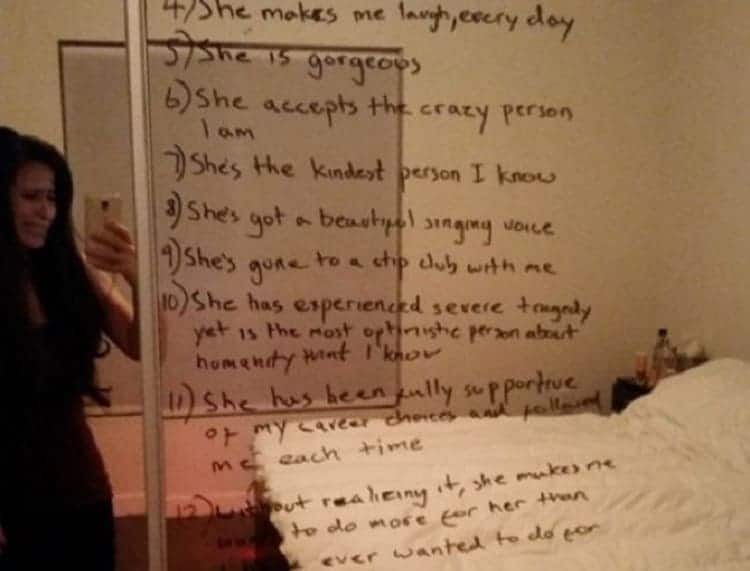 4) She makes me laugh, every day
5) She is gorgeous
6) She accepts the crazy person
I am
7) She's the kindest person I know
8) She's got a beautiful singing voice
9) She's gone to a strip club with me
10) She has experienced severe tragedy
yet is the most optimistic person about
humanity that I know
11) She has been fully supportive
of my career choices and followed
me each time
12) Without realizing it, she makes me
to do more for her than
ever wanted to do for